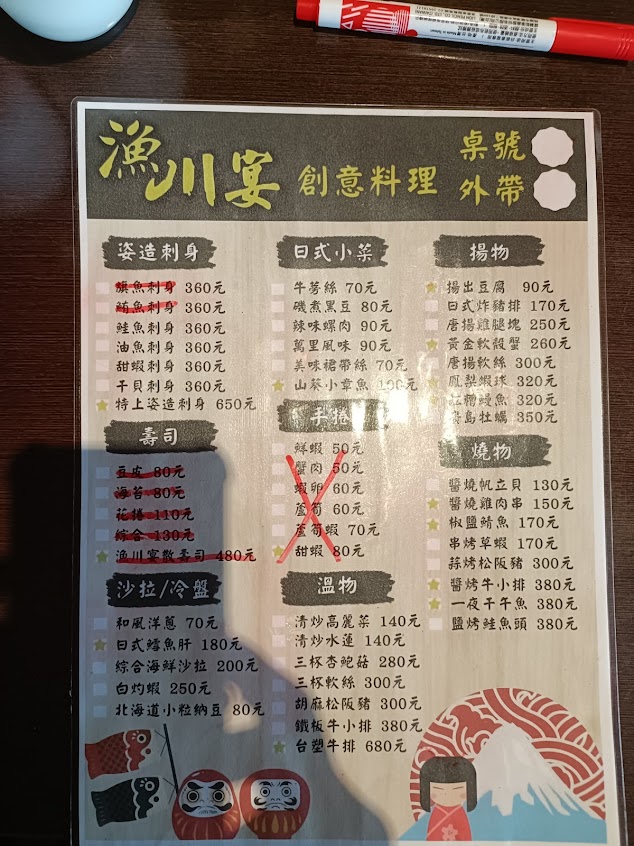 漁川宴 創意料理
桌號
外帶
姿造刺身
旗魚刺身 360元
鮪魚刺身 360元
鮭魚刺身 360元
油魚刺身 360元
甜蝦刺身 360元
干貝刺身 360元
特上姿造刺身 650元
壽司
豆皮 80元
海苔 80元
花捲 110元
綜合 130元
漁川宴散壽司 480元
沙拉/冷盤
和風洋蔥 70元
日式鱈魚肝 180元
綜合海鮮沙拉 200元
白灼蝦 250元
北海道小粒納豆 80元
日式小菜
牛蒡絲 70元
磯煮黑豆 80元
辣味螺肉 90元
萬里風味 90元
美味裙帶絲 70元
山葵小章魚 100元
手捲
鮮蝦 50元
蟹肉 50元
蝦卵 60元
蘆筍 60元
蘆筍蝦 70元
甜蝦 80元
溫物
清炒高麗菜 140元
清炒水蓮 140元
三杯杏鮑菇 280元
三杯軟絲 300元
胡麻松阪豬 300元
鐵板牛小排 380元
台塑牛排 680元
揚物
揚出豆腐 90元
日式炸豬排 170元
唐揚雞腿塊 250元
黃金軟殼蟹 260元
唐揚軟絲 300元
鳳梨蝦球 320元
紅糟鰻魚 320元
島牡蠣 350元
燒物
醬燒帆立貝 130元
醬燒雞肉串 150元
椒鹽鯖魚 170元
串烤草蝦 170元
蒜烤松阪豬 300元
醬烤牛小排 380元
一夜干午魚 380元
鹽烤鮭魚頭 380元